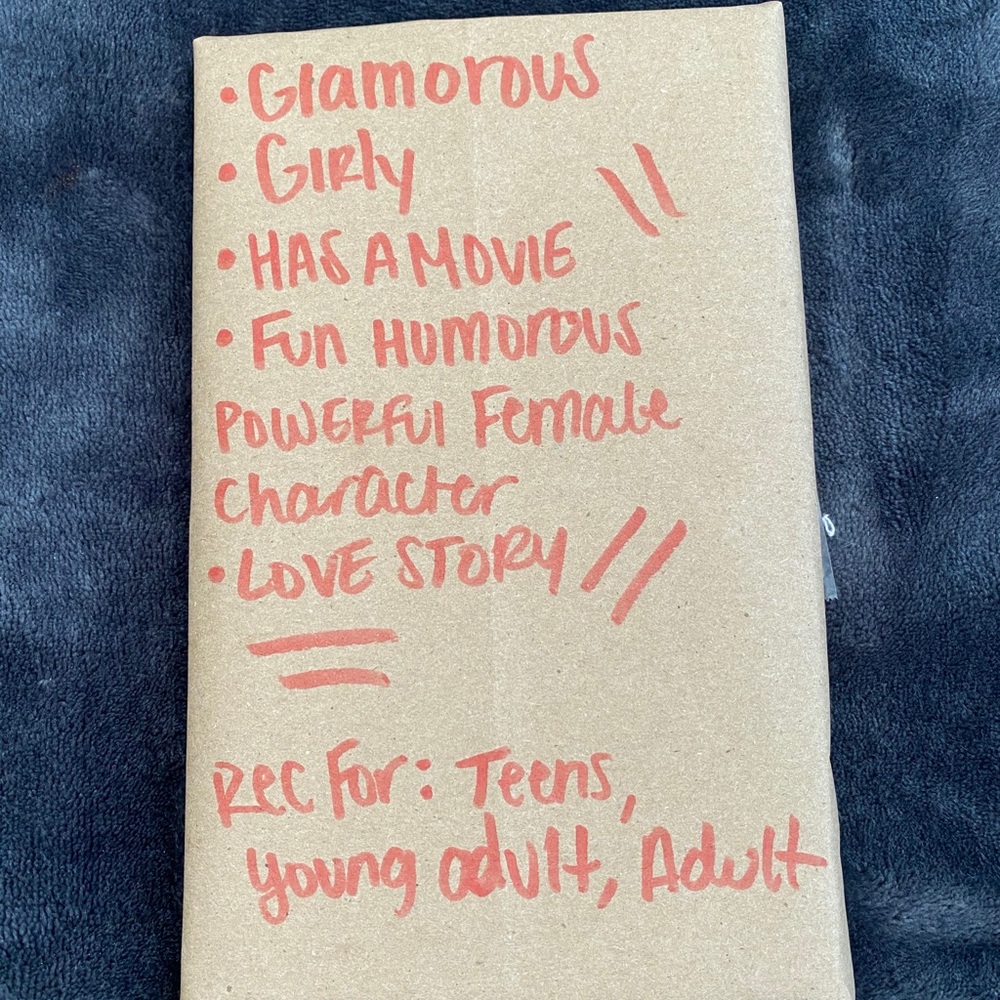 • Glamorous
• Girly
• HAS A MOVIE
• Fun Humorous
POWERFUl Female
character
• LOVE STORY
Rec For: Teens,
young adult, Adult